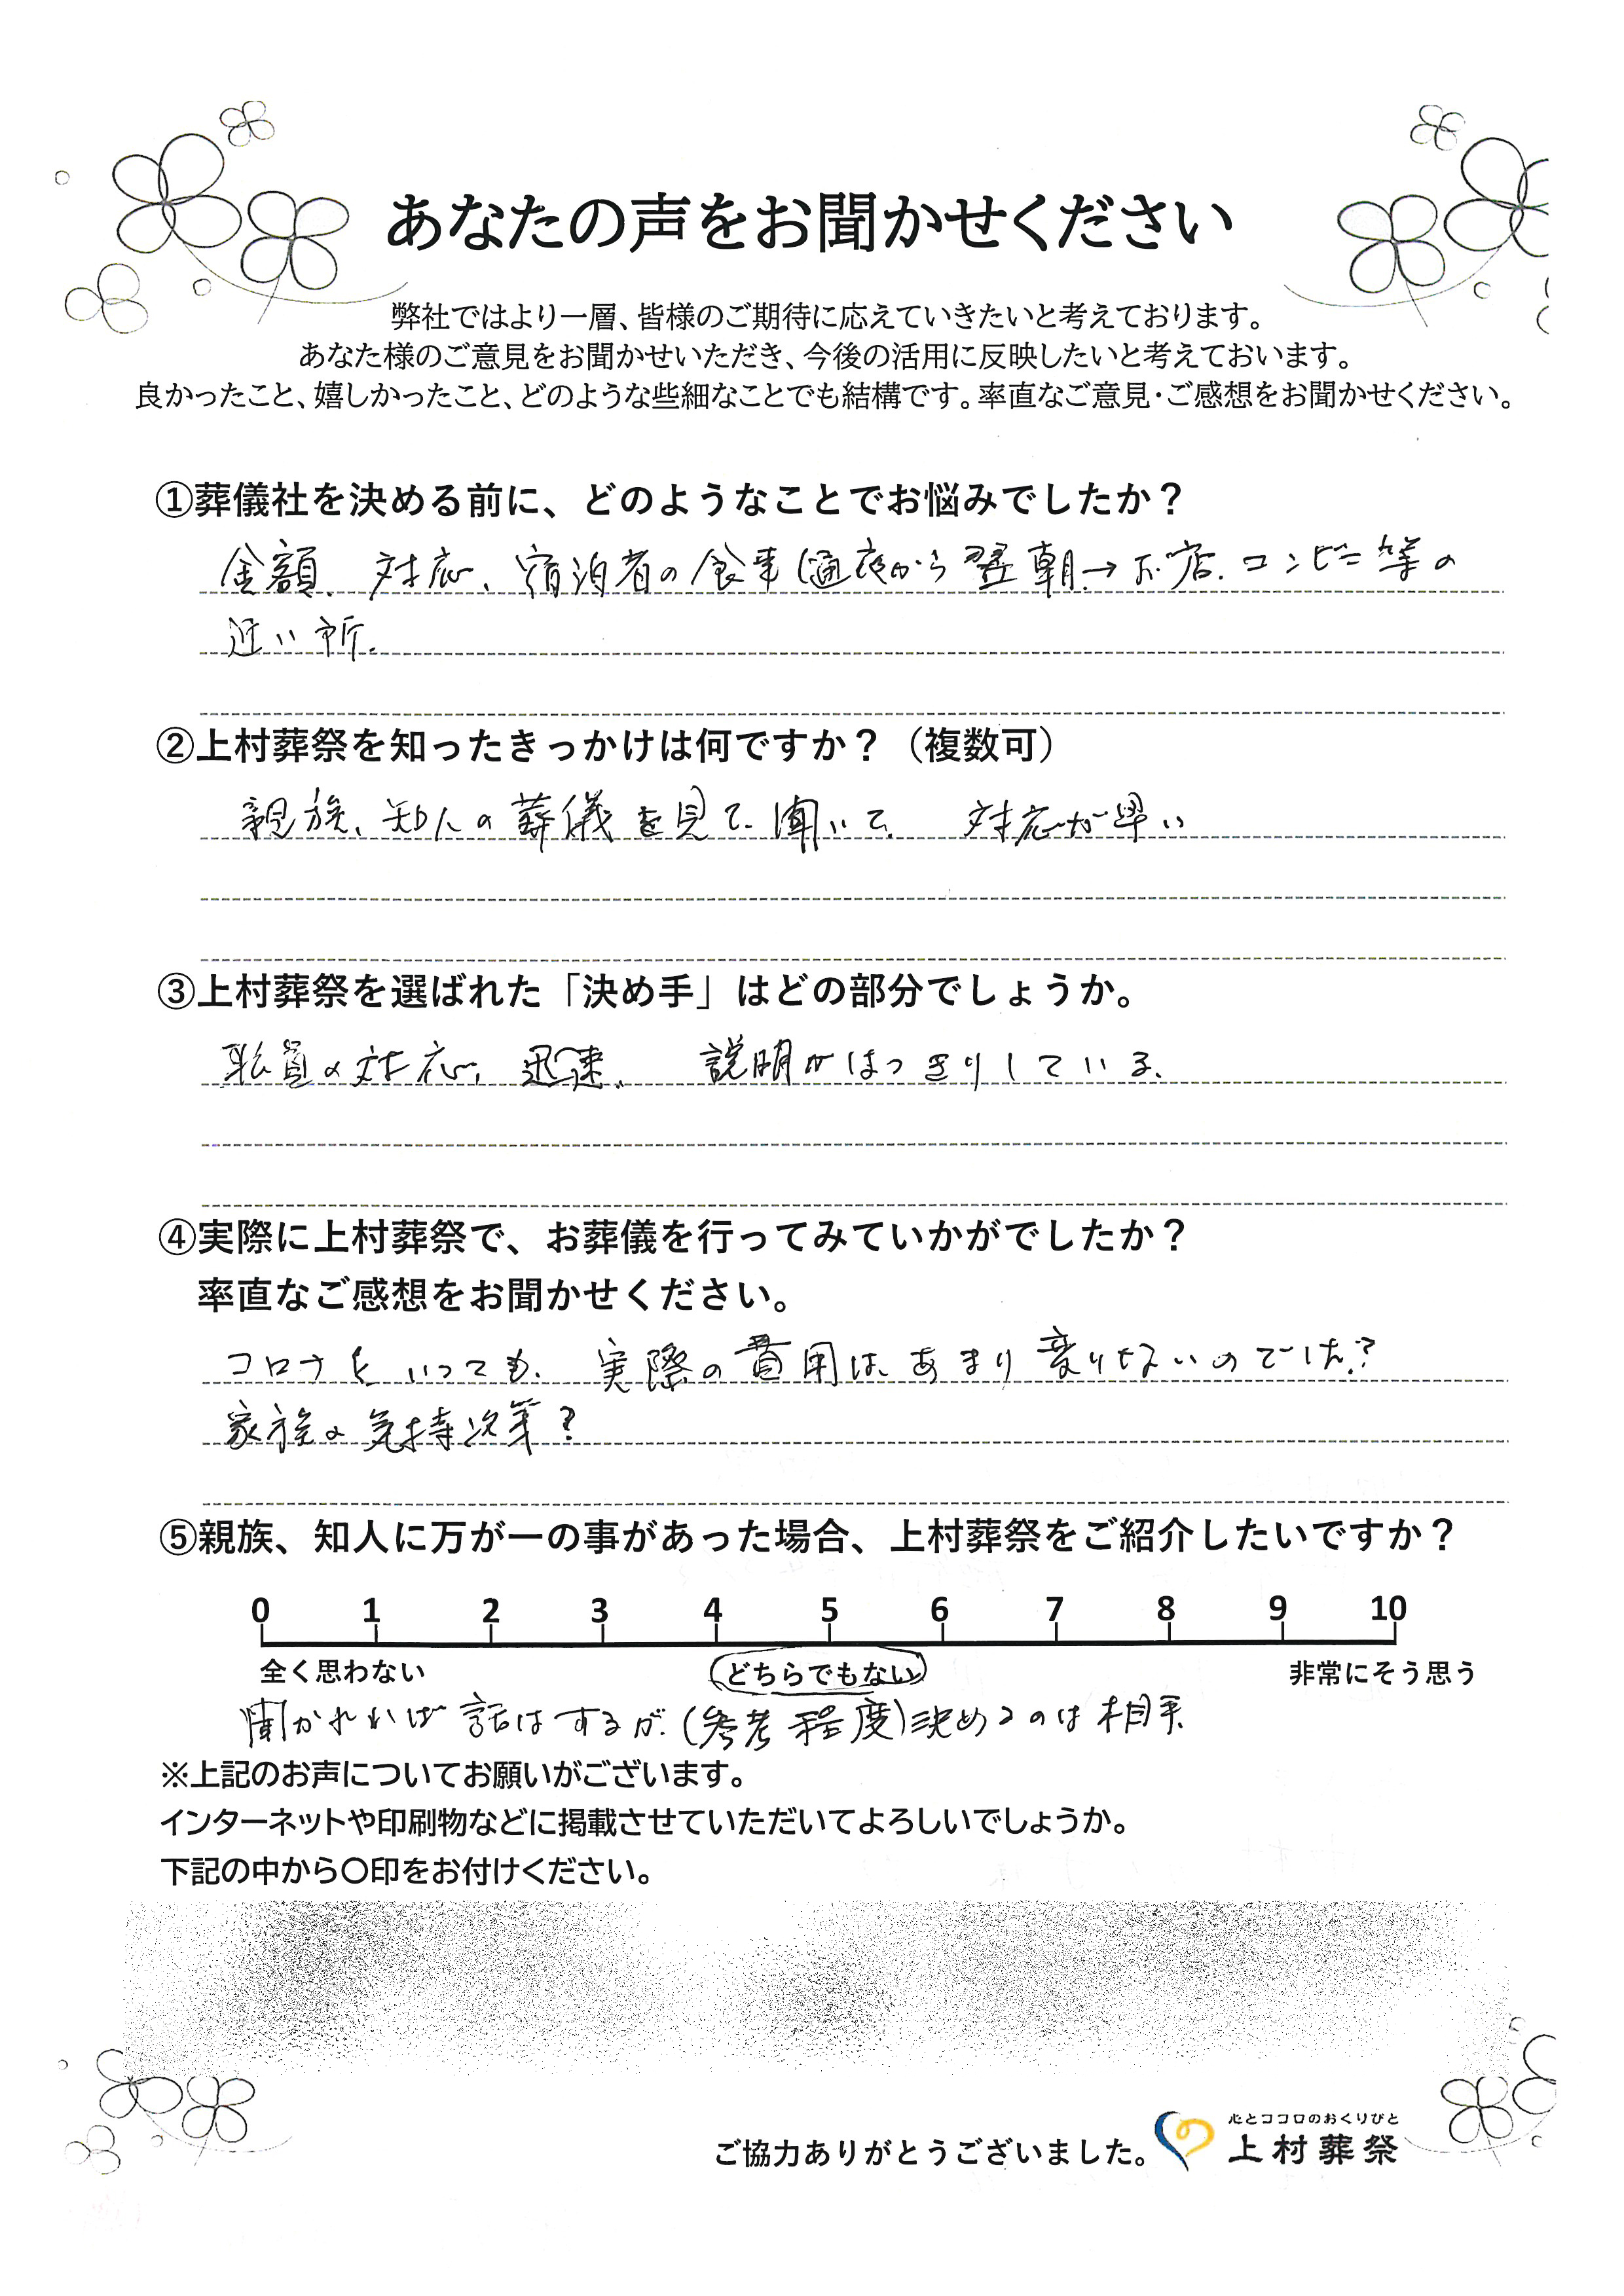 あなたの声をお聞かせください
弊社ではより一層、皆様のご期待に応えていきたいと考えております。
あなた様のご意見をお聞かせいただき、今後の活用に反映したいと考えておいます。
良かったこと、嬉しかったこと、どのような些細なことでも結構です。率直なご意見・ご感想をお聞かせください。
①葬儀社を決める前に、どのようなことでお悩みでしたか？
金額、対応、宿泊者の食事(通夜から翌朝→お店、コンビニ等の
近い所。
②上村葬祭を知ったきっかけは何ですか？（複数可）
親族、知人の葬儀を見て、聞いて、 対応が早い
③上村葬祭を選ばれた「決め手」はどの部分でしょうか。
職員の対応、迅速、 説明がはっきりしている。
④実際に上村葬祭で、お葬儀を行ってみていかがでしたか？
率直なご感想をお聞かせください。
コロナといっても、実際の費用は、あまり変りないのでした？
家族の気持次第？
⑤親族、知人に万が一の事があった場合、上村葬祭をご紹介したいですか？
0 1 2 3 4 5 6 7 8 9 10
全く思わない どちらでもない 非常にそう思う
聞かれれば話はするが、(参考程度)決めるのは相手
※上記のお声についてお願いがございます。
インターネットや印刷物などに掲載させていただいてよろしいでしょうか。
下記の中から〇印をお付けください。
心とココロのおくりびと
ご協力ありがとうございました。 上村葬祭